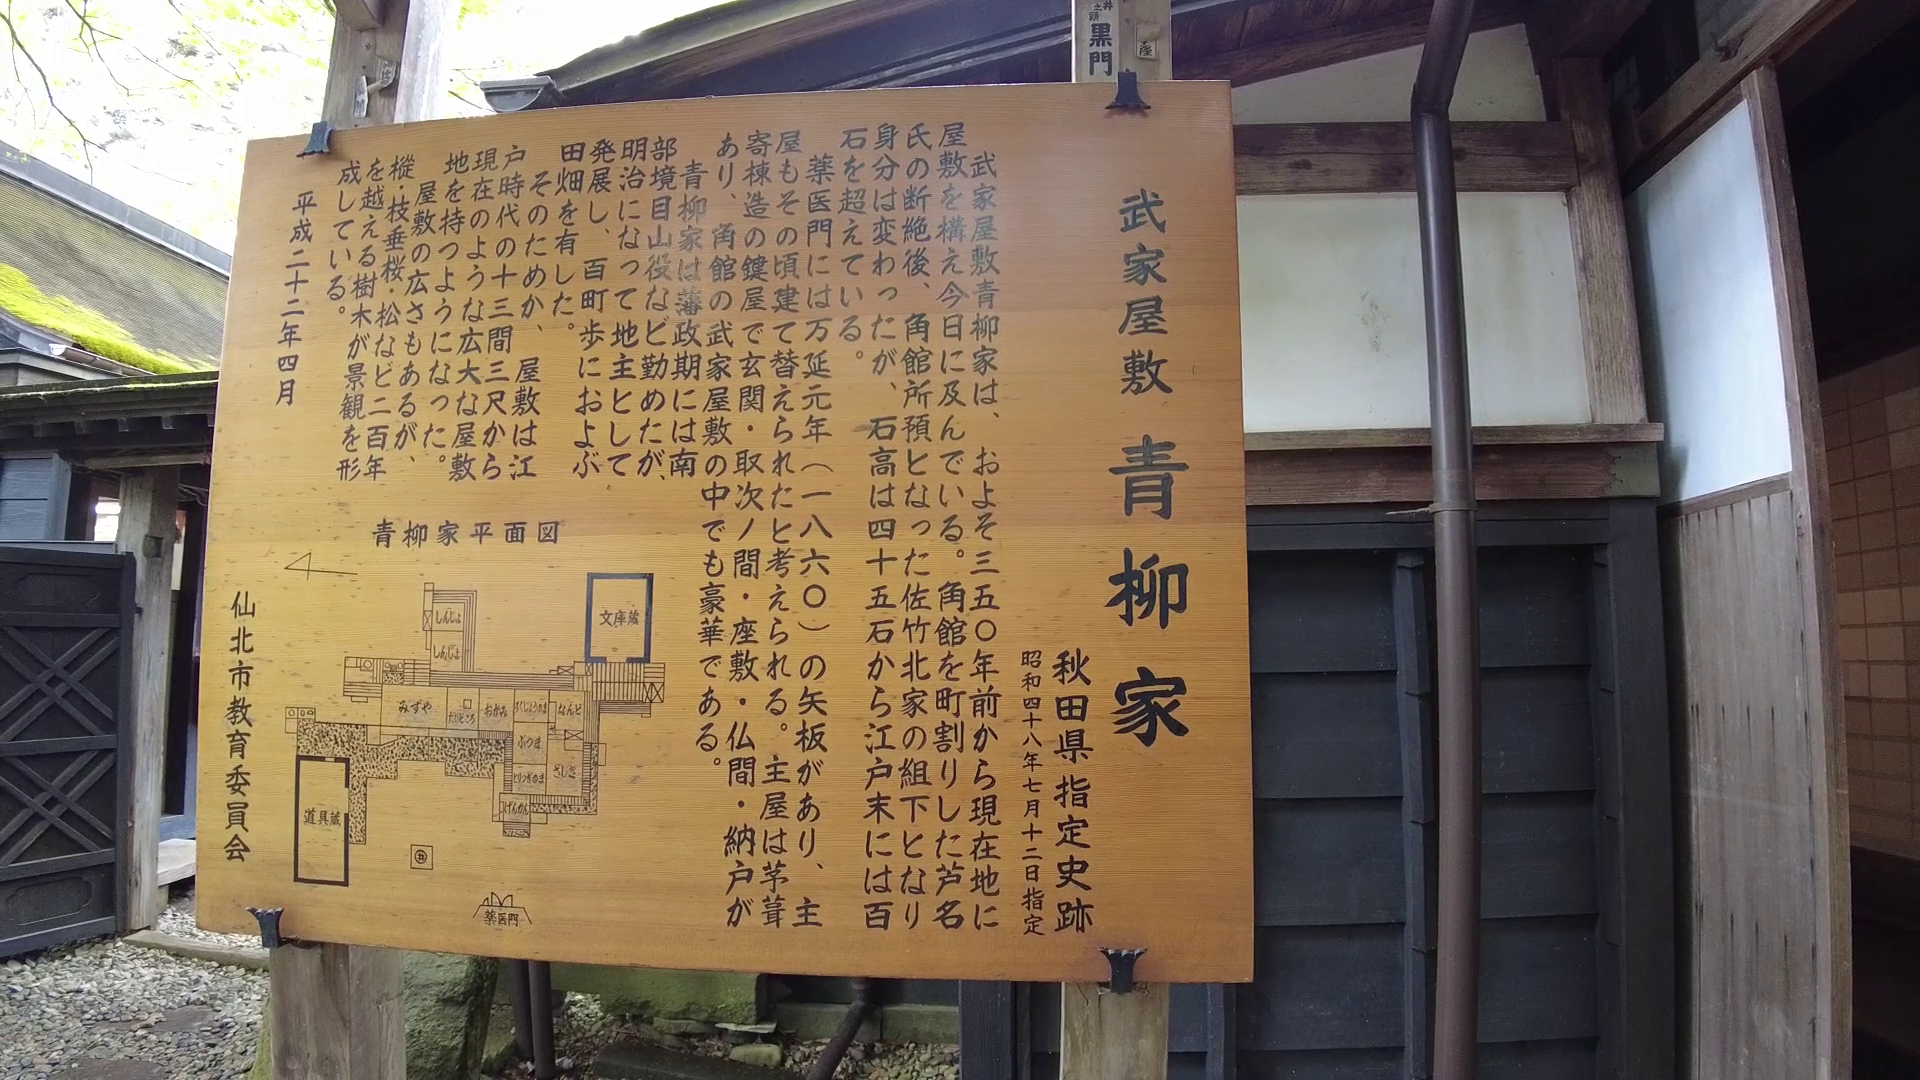 武家屋敷 青柳家
秋田県指定史跡
昭和四十八年七月十二日指定
武家屋敷青柳家は、およそ三五〇年前から現在地に
屋敷を構え今日に及んでいる。角館を町割りした芦名
氏の断絶後、角館所預となった佐竹北家の組下となり
身分は変わったが、石高は四十五石から江戸末には百
石を超えている。
薬医門には万延元年(一八六〇)の矢板があり、主
屋もその頃建て替えられたと考えられる。主屋は茅葺
寄棟造の鍵屋で玄関・取次ノ間・座敷・仏間・納戸が
あり、角館の武家屋敷の中でも豪華である。
青柳家は藩政期には南
部境目山役など勤めたが、
明治になって地主として
発展し、百町歩におよぶ
田畑を有した。
そのためか、屋敷は江
戸時代の十三間三尺から
現在のような広大な屋敷
地を持つようになった。
屋敷の広さもあるが、
樅・枝垂桜、松など二百年
を越える樹木が景観を形
成している。
平成二十二年四月
仙北市教育委員会
青柳家平面図
文庫蔵
しんじょ
しんじょ
みずや
だいどころ
おかみ
なんど
ぶつま
ざしき
とりつぎのま
げんかん
道具蔵
井
薬医門
黒門